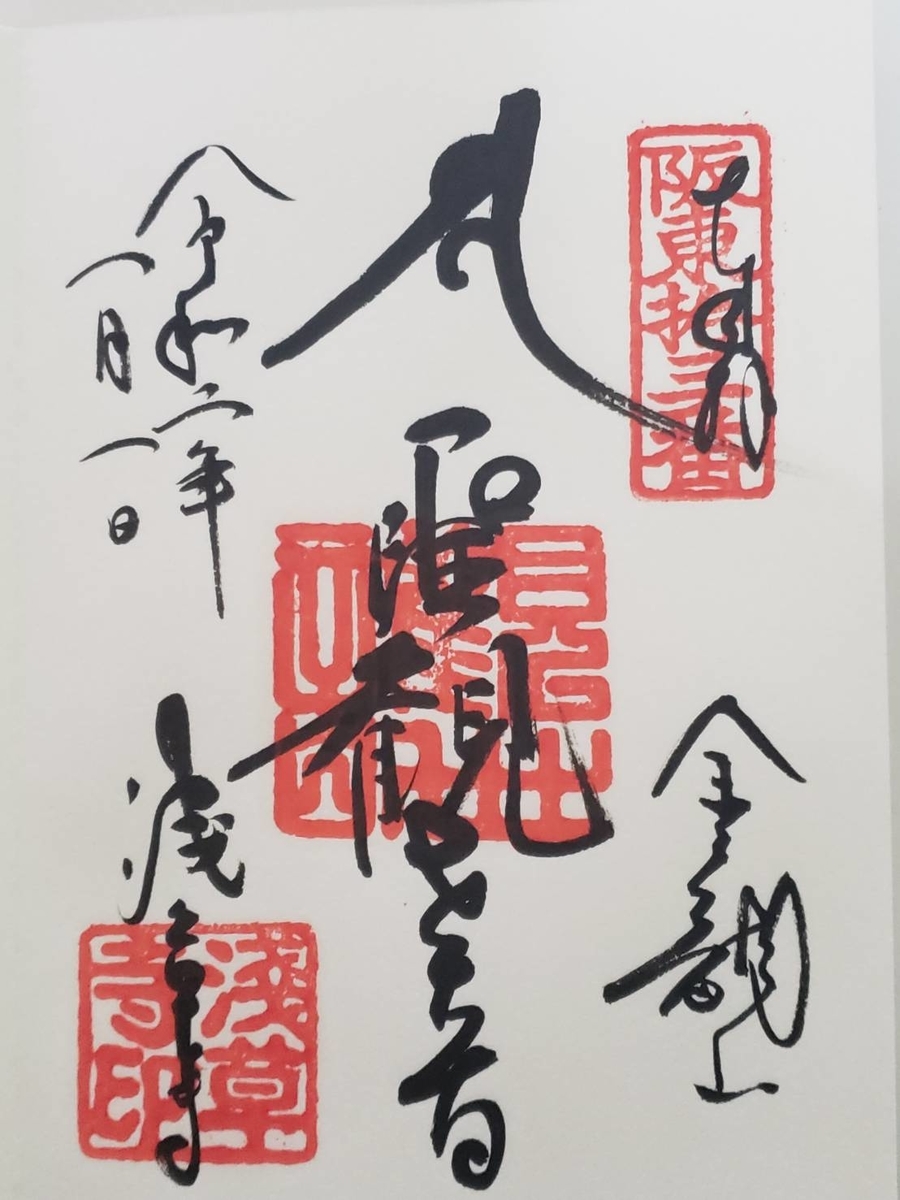 奉拝
阪東拾三番
金龍山
聖観世音
令和二年
一月一日
浅草寺
浅草寺印